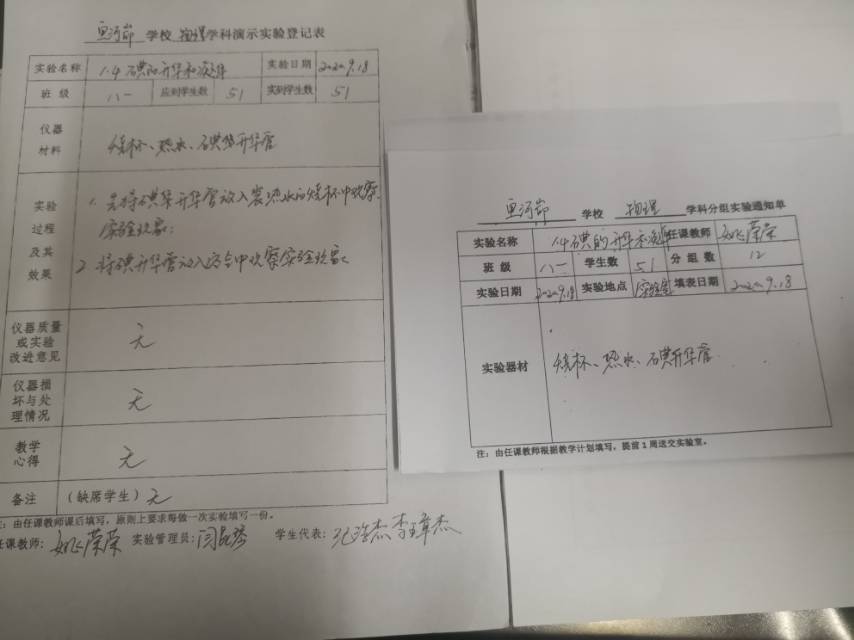 鱼河峁 学校 物理 学科演示实验登记表
实验名称 1.4碘的升华和凝华 实验日期 2020.9.18
班 级 八一 应到学生数 51 实到学生数 51
仪器
材料
烧杯、热水、碘升华管
实验
过程
及其
效果
1. 先将碘升华管放入装热水的烧杯中观察
实验现象;
2. 将碘升华管放入冷水中观察实验现象
仪器质量
或实验
改进意见
无
仪器损
坏与处
理情况
无
教学
心得
无
备注 (缺席学生) 无
注:由任课教师课后填写,原则上要求每做一次实验填写一份。
任课教师: 姚荣荣 实验管理员: 学生代表:
鱼河峁 学校 物理 学科分组实验通知单
实验名称 1.4碘的升华和凝华 任课教师 姚荣荣
班 级 八二 学生数 51 分 组 数 12
实验日期 2020.9.18 实验地点 实验室 填表日期 2020.9.18
实验器材 烧杯、热水、碘升华管
注:由任课教师根据教学计划填写,提前1周送交实验室。